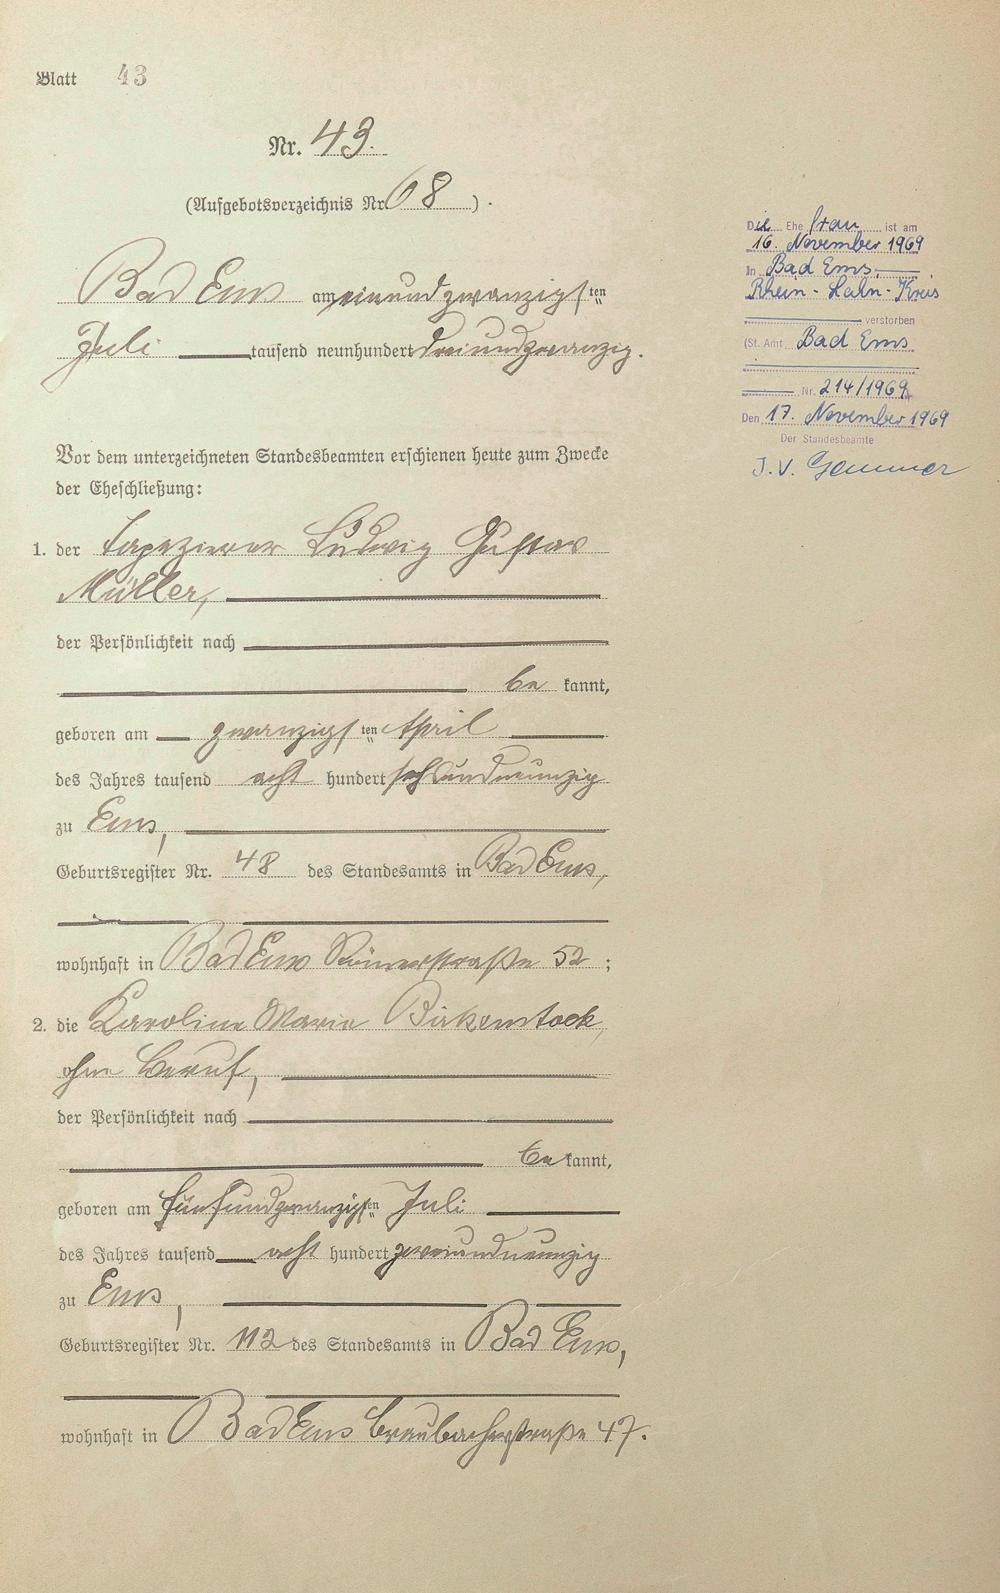 Blatt 43
Nr. 43.
(Aufgebotsverzeichnis Nr. 68).
Bad Ems am einundzwanzigsten
Juli tausend neunhundert dreiundzwanzig.
Vor dem unterzeichneten Standesbeamten erschienen heute zum Zwecke
der Eheschließung:
1. der Tapezierer Ludwig Gustav
Müller,
der Persönlichkeit nach
be kannt,
geboren am zwanzigsten April
des Jahres tausend acht hundert sechsundneunzig
zu Ems,
Geburtsregister Nr. 48 des Standesamts in Bad Ems,
wohnhaft in Bad Ems Römerstraße 52;
2. die Karoline Marie Birkenstock,
ohne Beruf,
der Persönlichkeit nach
be kannt,
geboren am fünfundzwanzigsten Juli
des Jahres tausend acht hundert zweiundneunzig
zu Ems,
Geburtsregister Nr. 112 des Standesamts in Bad Ems,
wohnhaft in Bad Ems Braubacherstraße 47.
Die Ehe frau ist am
16. November 1969
In Bad Ems,
Rhein-Lahn-Kreis
verstorben
(St. Amt Bad Ems
Nr. 214/1969
Den 17. November 1969
Der Standesbeamte
J. V.